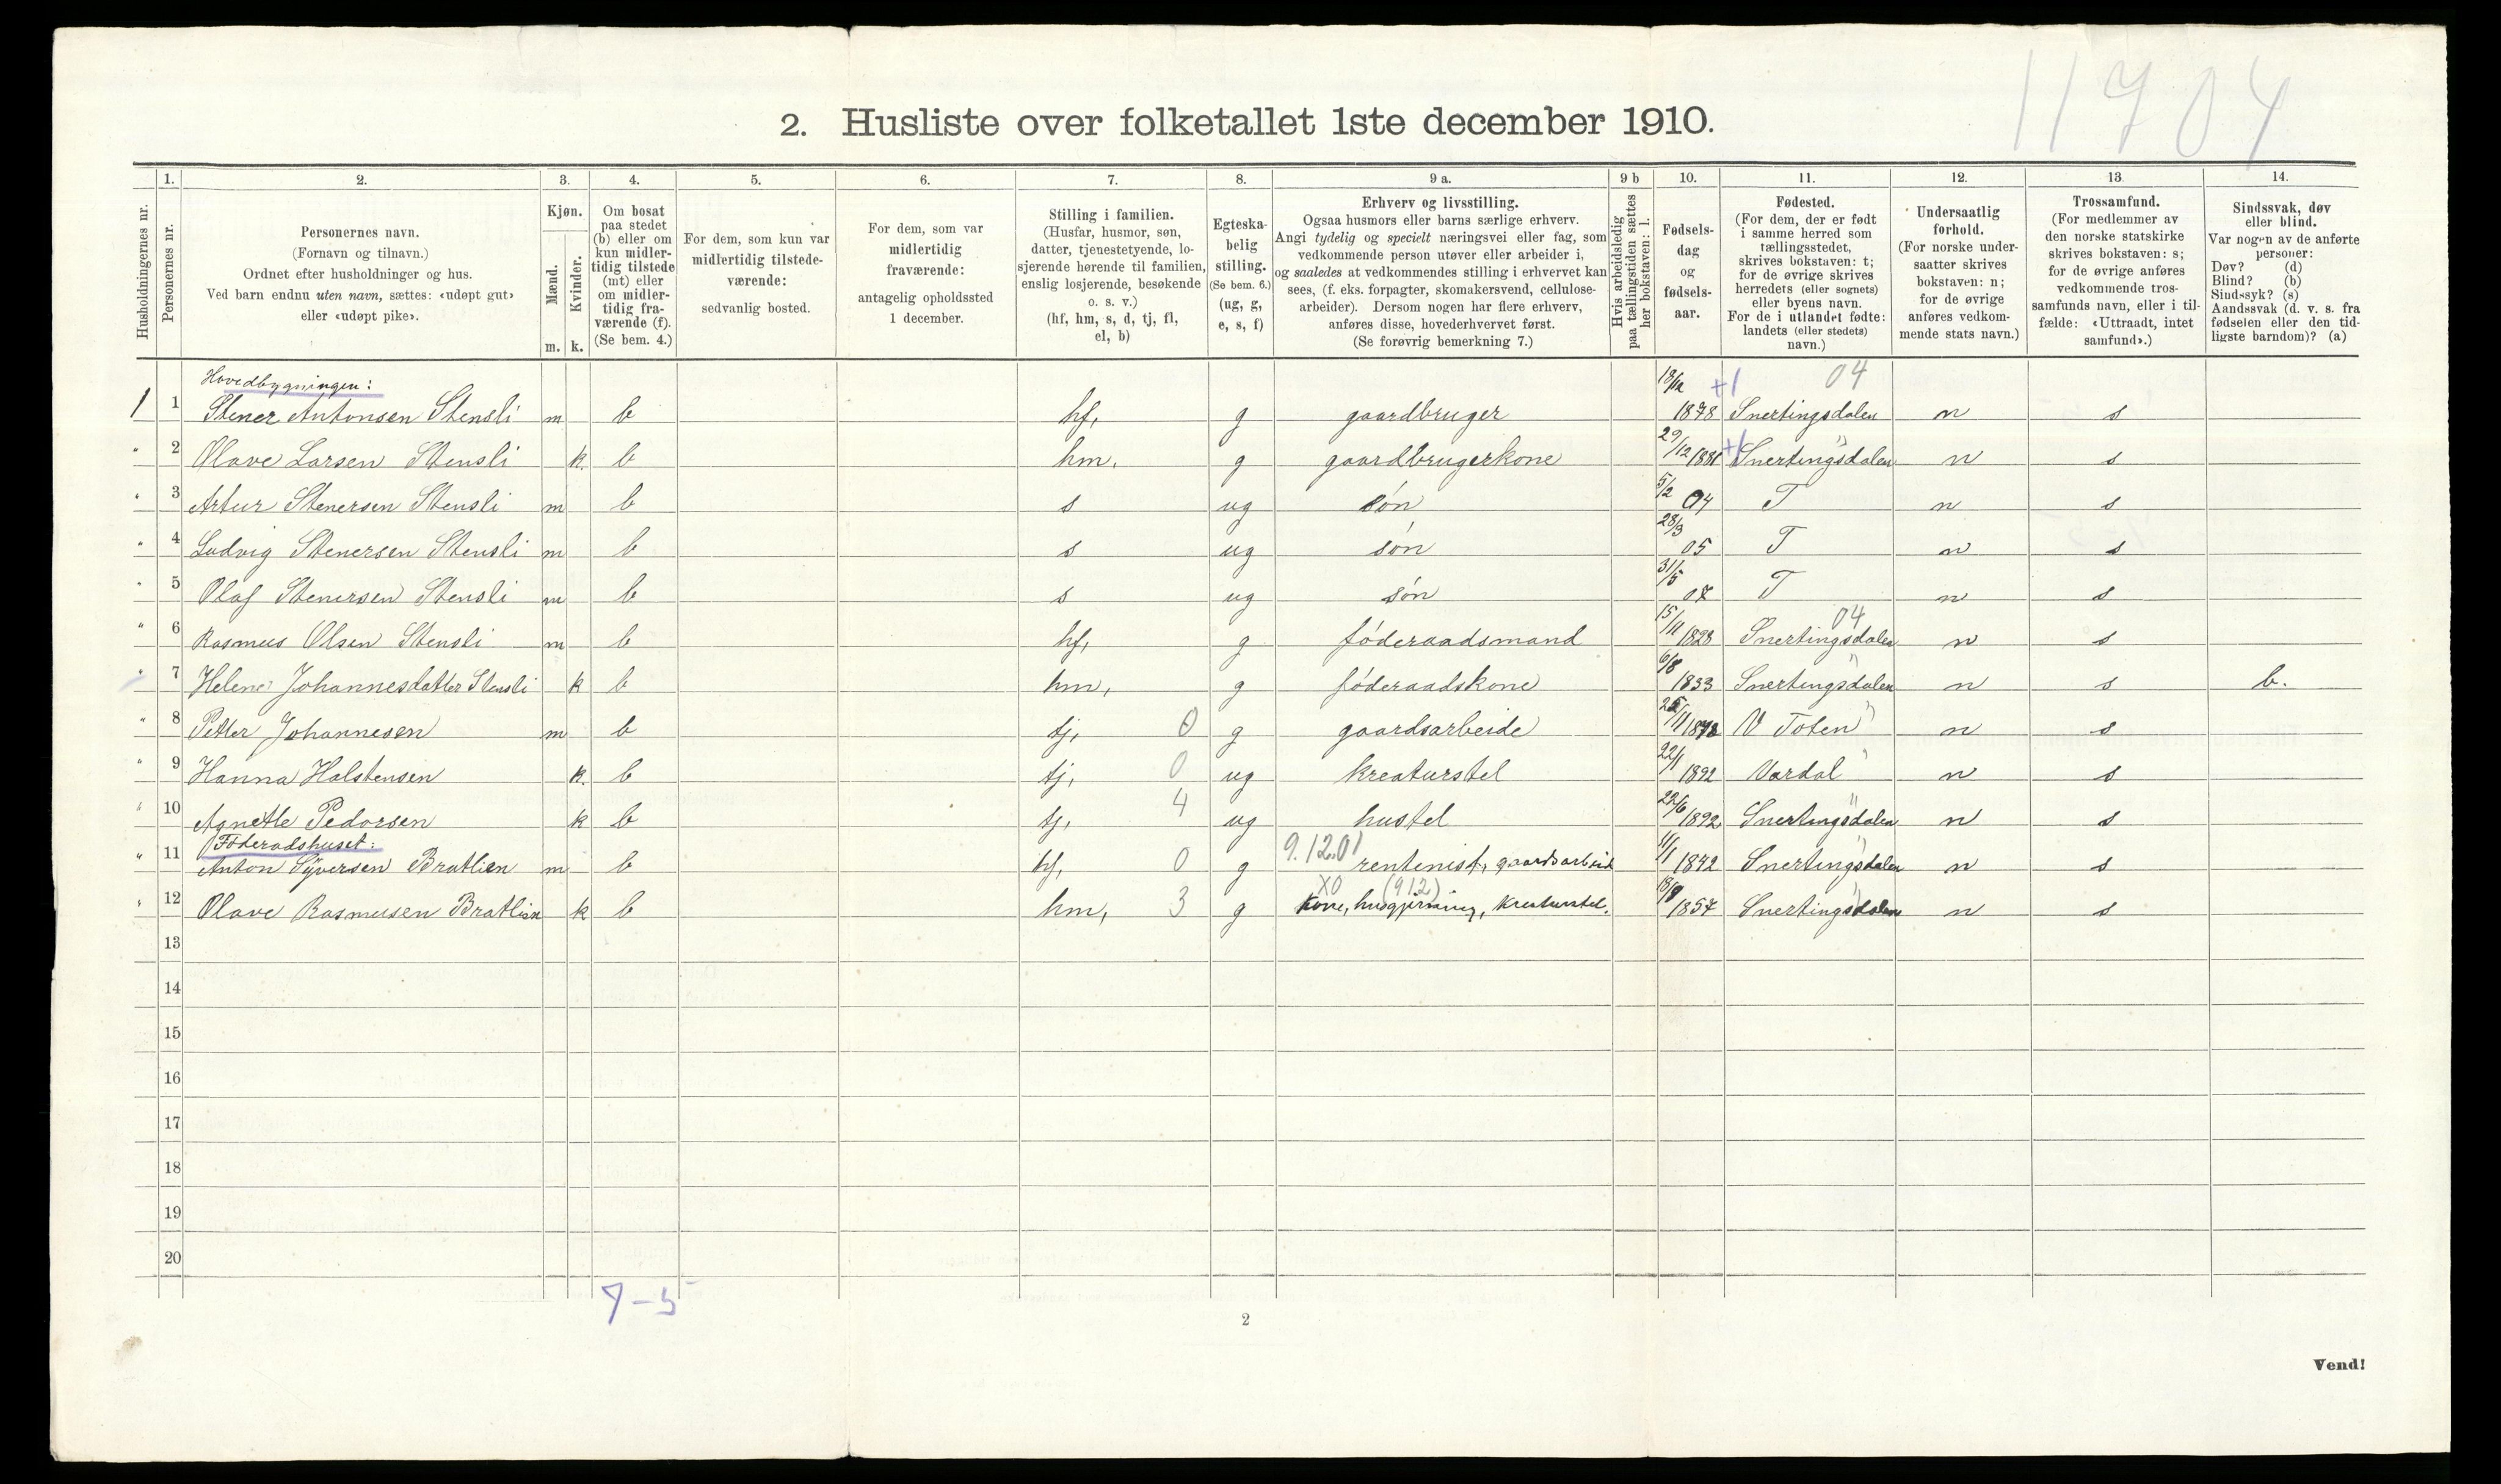 11704
2. Husliste over folketallet 1ste december 1910.
Husholdningernes nr.
1.
Personernes nr.
2.
Personernes navn.
(Fornavn og tilnavn.)
Ordnet efter husholdninger og hus.
Ved barn endnu uten navn, sættes: «udøpt gut»
eller «udøpt pike».
3.
Kjøn.
Mænd.
Kvinder.
m. k.
4.
Om bosat
paa stedet
(b) eller om
kun midler-
tidig tilstede
(mt) eller
om midler-
tidig fra-
værende (f).
(Se bem. 4.)
5.
For dem, som kun var
midlertidig tilstede-
værende:
sedvanlig bosted.
6.
For dem, som var
midlertidig
fraværende:
antagelig opholdssted
1 december.
7.
Stilling i familien.
(Husfar, husmor, søn,
datter, tjenestetyende, lo-
sjerende hørende til familien,
enslig losjerende, besøkende
o. s. v.)
(hf, hm, s, d, tj, fl,
el, b)
8.
Egteska-
belig
stilling.
(Se bem. 6.)
(ug, g,
e, s, f)
9 a.
Erhverv og livsstilling.
Ogsaa husmors eller barns særlige erhverv.
Angi tydelig og specielt næringsvei eller fag, som
vedkommende person utøver eller arbeider i,
og saaledes at vedkommendes stilling i erhvervet kan
sees, (f. eks. forpagter, skomakersvend, cellulose-
arbeider). Dersom nogen har flere erhverv,
anføres disse, hovederhvervet først.
(Se forøvrig bemerkning 7.)
9 b
Hvis arbeidsledig
paa tællingstiden sættes
her bokstaven: l.
10.
Fødsels-
dag
og
fødsels-
aar.
11.
Fødested.
(For dem, der er født
i samme herred som
tællingsstedet,
skrives bokstaven: t;
for de øvrige skrives
herredets (eller sognets)
eller byens navn.
For de i utlandet fødte:
landets (eller stedets)
navn.)
12.
Undersaatlig
forhold.
(For norske under-
saatter skrives
bokstaven: n;
for de øvrige
anføres vedkom-
mende stats navn.)
13.
Trossamfund.
(For medlemmer av
den norske statskirke
skrives bokstaven: s;
for de øvrige anføres
vedkommende tros-
samfunds navn, eller i til-
fælde: «Uttraadt, intet
samfund».)
14.
Sindssvak, døv
eller blind.
Var nogen av de anførte
personer:
Døv? (d)
Blind? (b)
Sindssyk? (s)
Aandssvak (d. v. s. fra
fødselen eller den tid-
ligste barndom)? (a)
Hovedbygningen: 04
1 1 Stener Antonsen Stensli m b hf, g gaardbruger 18/12 1878 +1 Snertingsdalen n s
" 2 Olave Larsen Stensli k. b hm, g gaardbrugerkone 29/12 1881 +1 Snertingsdalen n s
" 3 Artur Stenersen Stensli m b s ug søn 5/2 04 T n s
" 4 Ludvig Stenersen Stensli m b s ug søn 28/3 05 T n s
" 5 Olaf Stenersen Stensli m b s ug søn 31/5 08 T n s
" 6 Rasmus Olsen Stensli m b hf, g føderaadsmand 15/11 1828 Snertingsdalen 04 n s
" 7 Helene Johannesdatter Stensli k b hm, g føderaadskone 6/8 1833 Snertingsdalen " n s b.
" 8 Petter Johannesen m b tj, 0 g gaardsarbeide 1878 V Toten " n s
" 9 Hanna Halstensen k. b tj, 0 ug kreaturstel 22/1 1892 Vardal " n s
" 10 Agnethe Pedersen k b tj, 4 ug hustel 22/6 1892 Snertingsdalen " n s
Føderadshuset:
" 11 Anton Syversen Bratlien m b hf, 0 g 9.12.01 rentenist, gaardsarbeid 11/1 1842 Snertingsdalen " n s
" 12 Olave Rasmusen Bratlien k b hm, 3 g X0 (912) kone, husgjerning, kreaturstel. 18/9 1857 Snertingsdalen " n s
13
14
15
16
17
18
19
20
7 – 5
2
Vend!